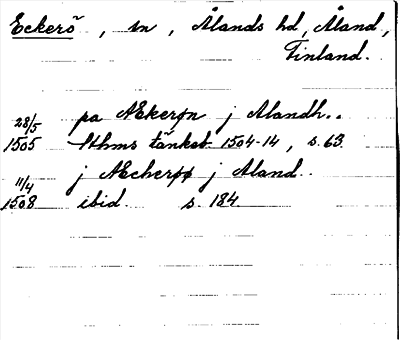 Eckerö, sn, Ålands hd, Åland,
Finland.
28/5 pa AEkerøn j Alandh..
1505 Sthms tänkeb 1504-14, s. 63.
11/4 j AEcherøø j Aland..
1508 ibid. s. 184.